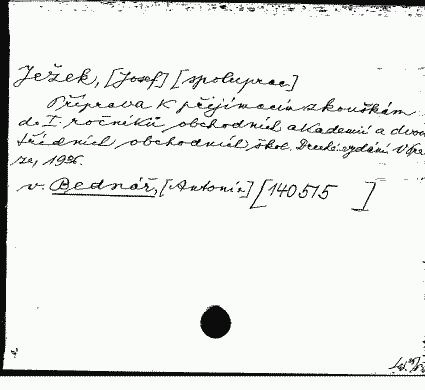 Ježek, [Josef] [spoluprac.]
Příprava k přijímacím zkouškám
do I. ročníků obchodních akademií a dvou
třídních obchodních škol. Druhé vydání. V Pra
ze, 1936.
v. Bednář, [Antonín] [140515 ]